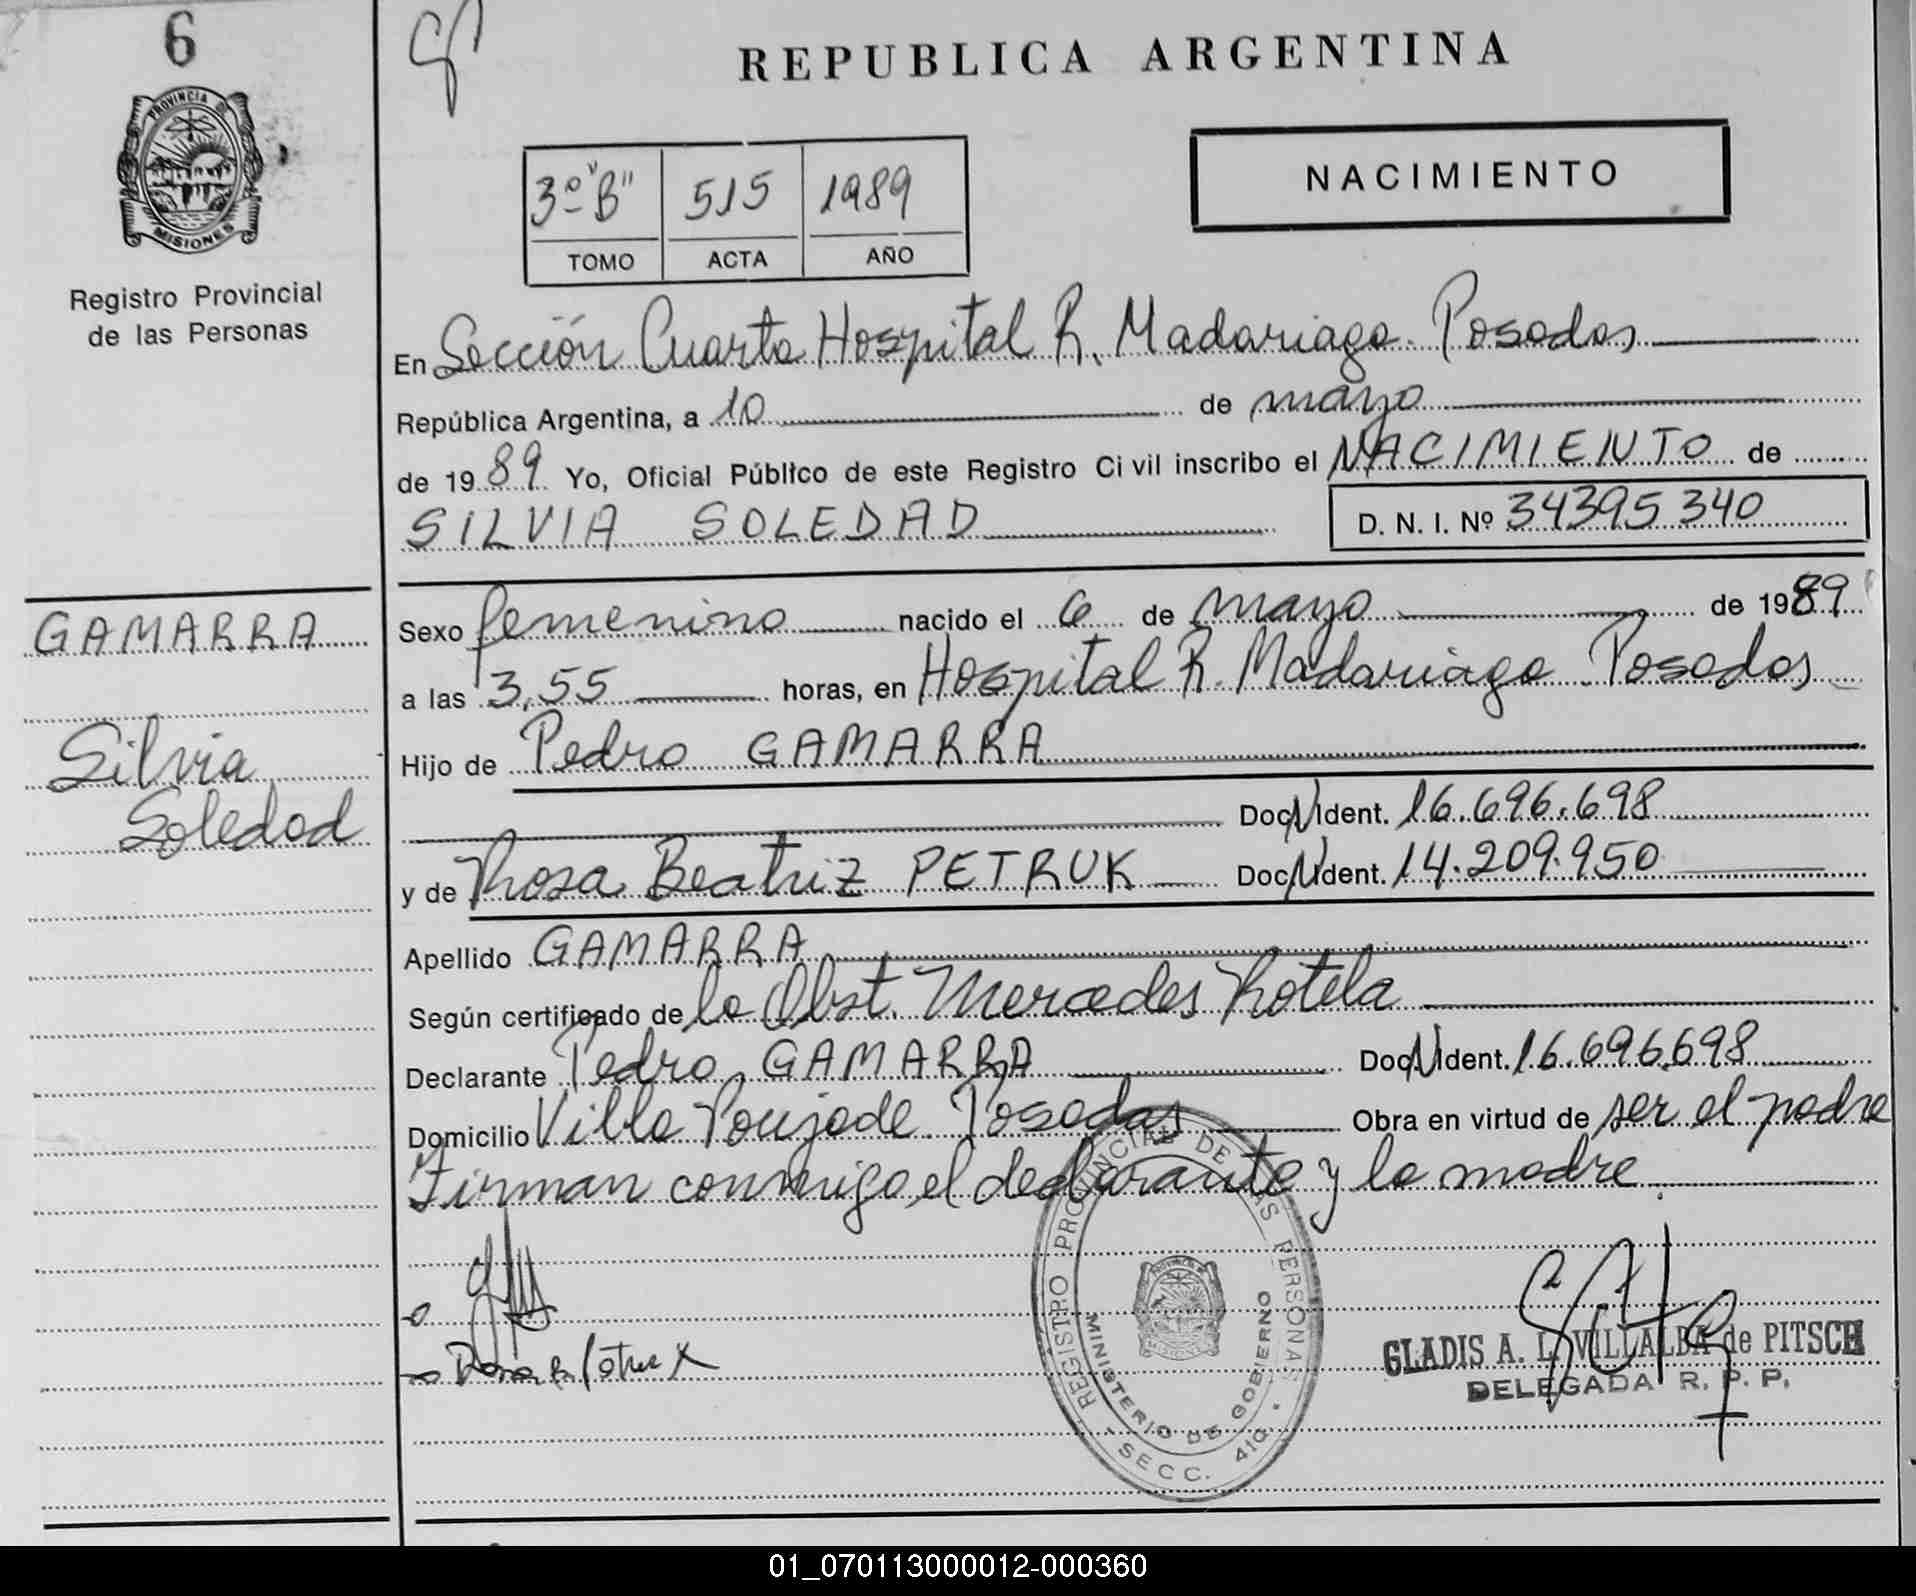 6
REPUBLICA ARGENTINA
PROVINCIA DE
MISIONES
Registro Provincial
de las Personas
3º "B" 515 1989
TOMO ACTA AÑO
NACIMIENTO
En Sección Cuarta Hospital R. Madariaga. Posadas
República Argentina, a 10 de mayo
de 1989 Yo, Oficial Público de este Registro Civil inscribo el NACIMIENTO de
SILVIA SOLEDAD D. N. I. Nº 34395340
GAMARRA
Silvia
Soledad
Sexo femenino nacido el 6 de mayo de 1989
a las 3,55 horas, en Hospital R. Madariaga. Posadas
Hijo de Pedro GAMARRA
Doc. N. Ident. 16.696.698
y de Rosa Beatriz PETRUK Doc. N. Ident. 14.209.950
Apellido GAMARRA
Según certificado de la Obst. Mercedes Rotela
Declarante Pedro GAMARRA Doc. N. Ident. 16.696.698
Domicilio Villa Poujade. Posadas Obra en virtud de ser el padre
Firman conmigo el declarante y la madre.
REGISTRO PROVINCIAL DE LAS PERSONAS
MINISTERIO DE GOBIERNO
SECC. 4ta.
GLADIS A. L. VILLALBA de PITSCH
DELEGADA R. P. P.
01_070113000012-000360